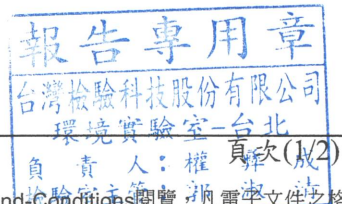 報告專用章
台灣檢驗科技股份有限公司
環境實驗室-台北
頁次(1/2)
負責人：權彝成
檢驗室主管：
nd-Conditions閱覽，凡電子文件之格